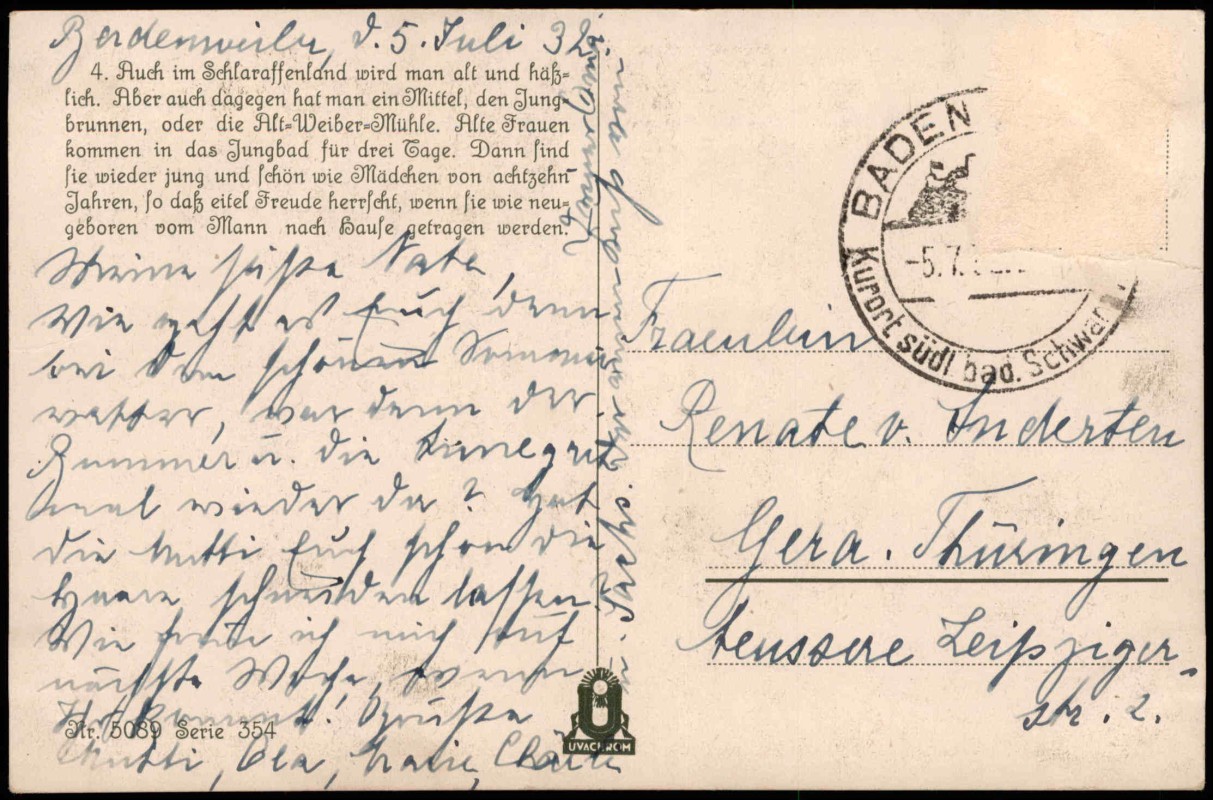 Badenweiler, d. 5. Juli 32.
4. Auch im Schlaraffenland wird man alt und häß-
lich. Aber auch dagegen hat man ein Mittel, den Jung-
brunnen, oder die Alt-Weiber-Mühle. Alte Frauen
kommen in das Jungbad für drei Tage. Dann sind
sie wieder jung und schön wie Mädchen von achtzehn
Jahren, so daß eitel Freude herrscht, wenn sie wie neu-
geboren vom Mann nach Hause getragen werden.
Meine süße Nate,
Wie geht es Euch denn
bei dem schönen Sommer
wetter, war denn der
u. die Annegret
mal wieder da? Hat
die Mutti Euch schon die
Haare schneiden lassen?
Wie freue ich mich auf
nächste Woche, wenn
Ihr kommt! Grüße
Nr. 5089 Serie 354
Mutti, Ola, Marie,
UVACHROM
BADEN
Kurort südl bad. Schwar
-5.7.
Fraeulein
Renate v. Inderten
Gera. Thüringen
Aeussere Leipziger-
str. 2.